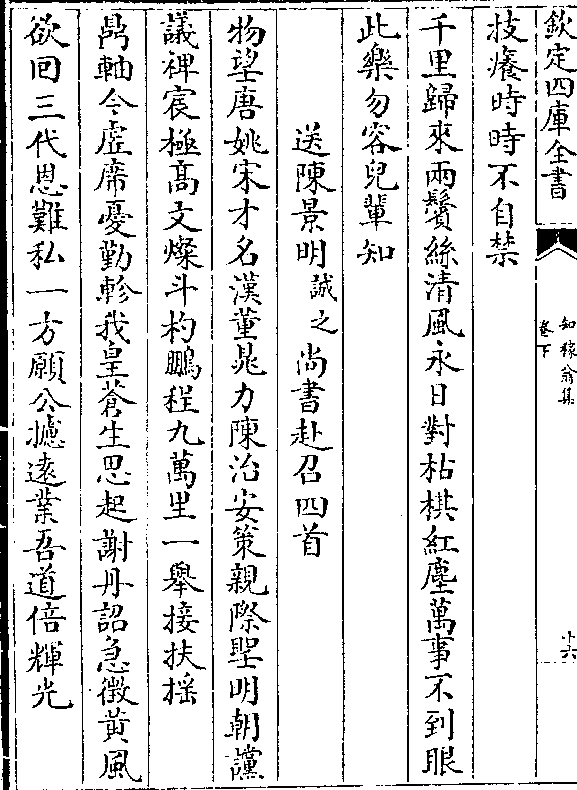 欽定四庫全書
知稼翁集
卷下
十六
技癢時時不自禁
千里歸來兩鬢絲清風永日對枯棋紅塵萬事不到眼
此樂勿容兒輩知
送陳景明誠之尚書赴召四首
物望唐姚宋才名漢董晁力陳治安策親際聖明朝讜
議裨宸極髙文燦斗杓鵬程九萬里一舉接扶揺
鼎軸今虚席憂勤軫我皇蒼生思起謝丹詔急徴黄風
欲回三代恩難私一方願公攄逺業吾道倍輝光